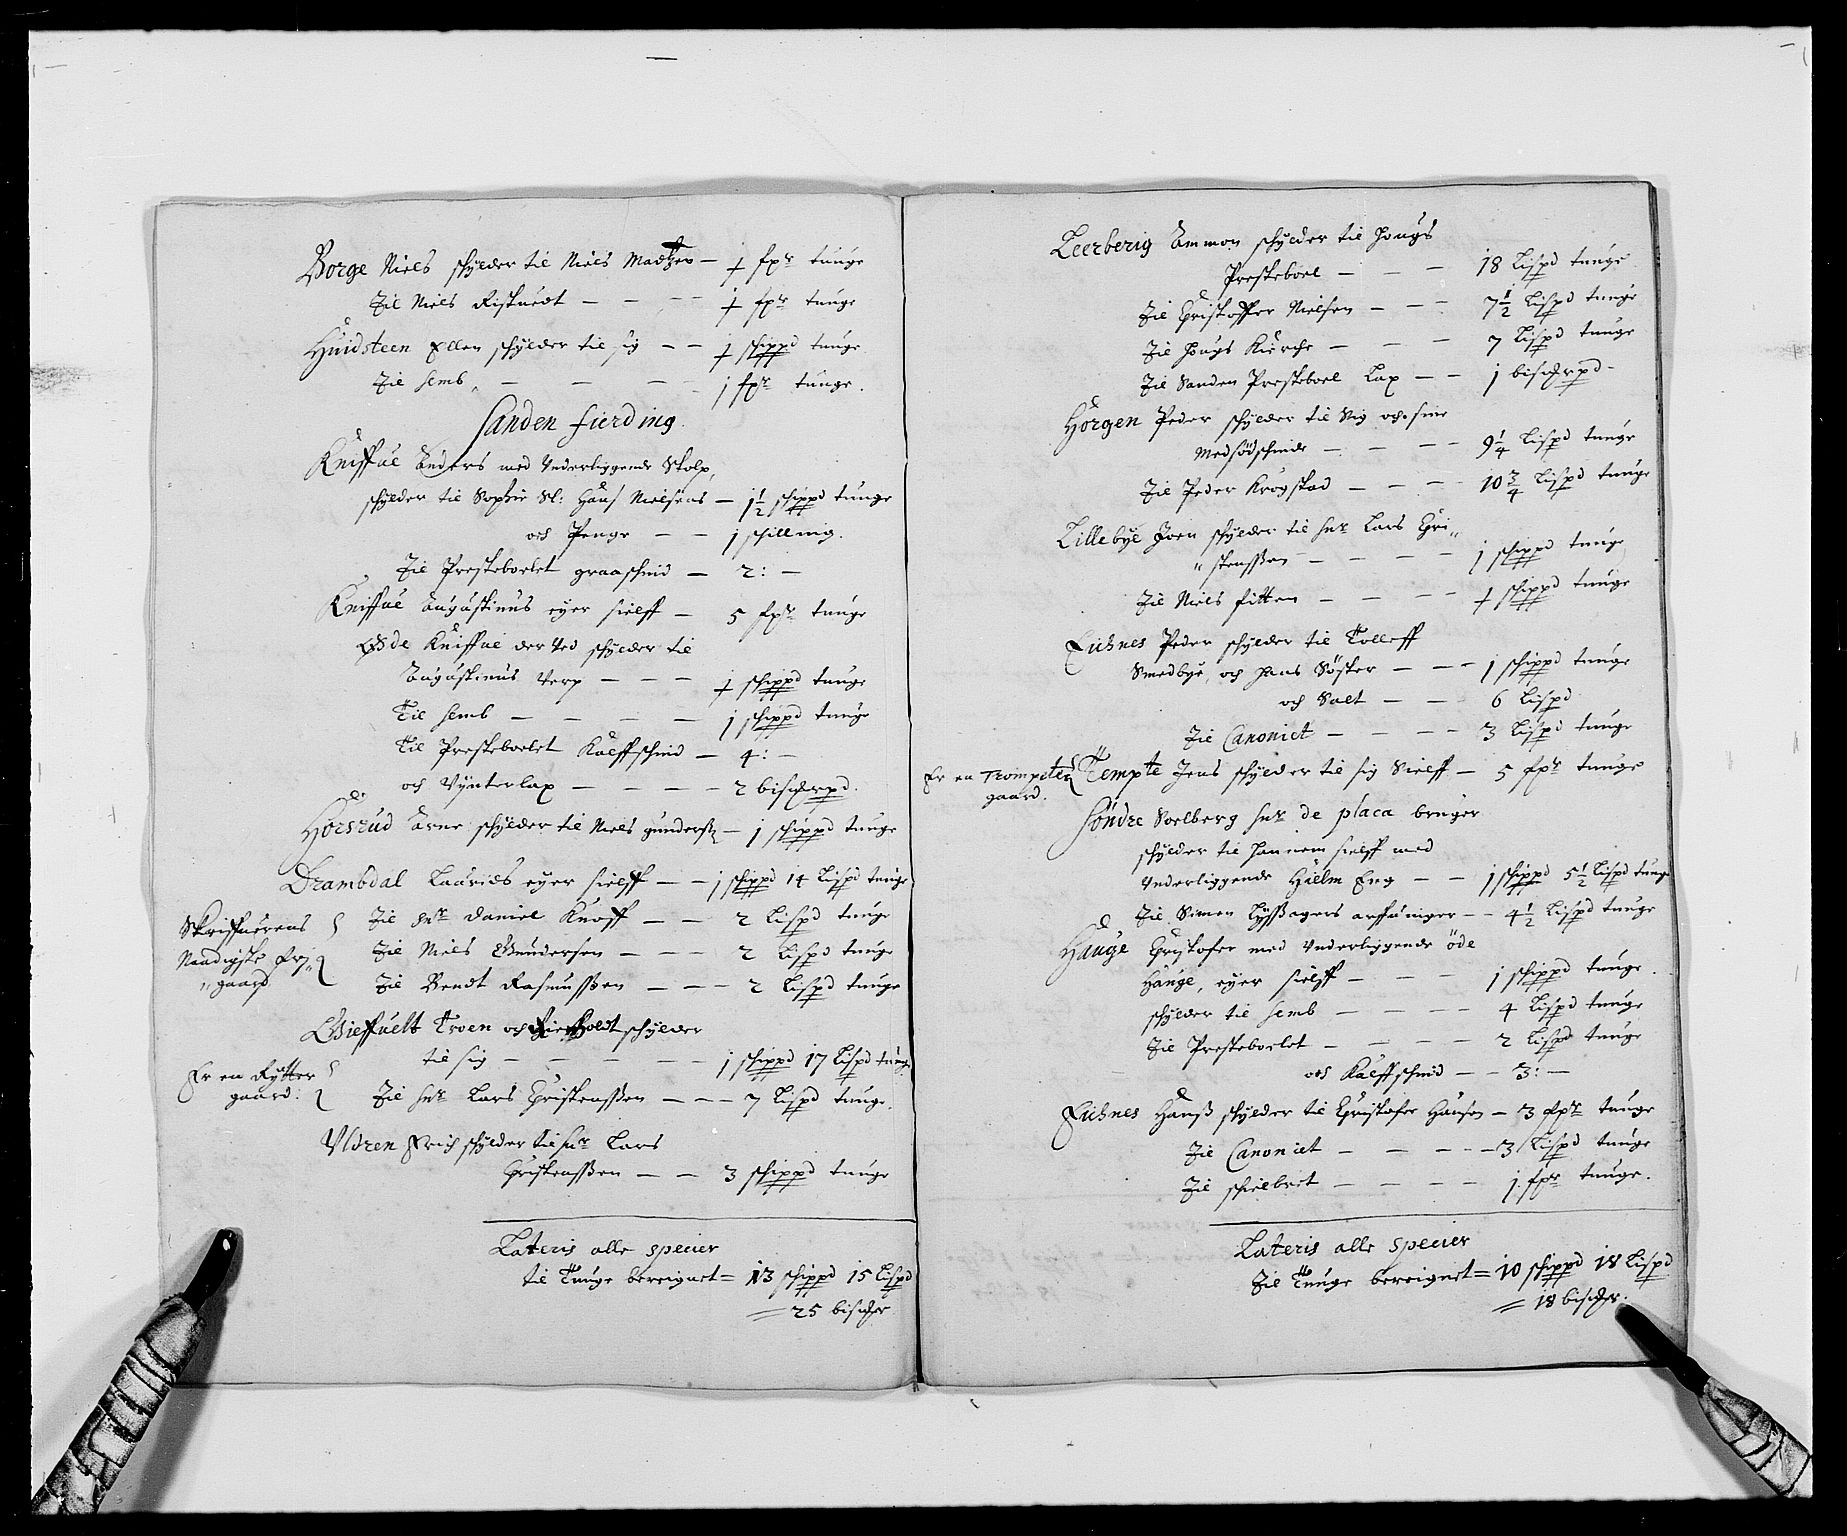 Borge Niels schylder til Niels Madtzen — ½ fpr tunge
Til Niels Riskuedt — — — ½ fpr tunge
Huidsteen Ellen schylder til sig — — ½ schippd tunge
Til Semb — — — 1 fpr tunge.
Sanden fierding.
Kniffue Anders med Underliggende Skolp,
schylder til Sophie Sl: Hans Nielsens — 1½ schippd tunge
och Penge — — 1 schilling.
Til Presteboelet graaschind — 2: —
Kniffue Augustinus eyer sielff — 5 fpr tunge
Øde Kniffue der Ved schylder til
Augustinus Verp — — — ½ schippd tunge
Til Semb — — — — 1 schippd tunge
Til Presteboelet Kalffschind — 4: —
och Vynterlax — — — — 2 bismerpd.
Horsrud Arne schylder til Niels gunders — 1 schippd tunge
Drambdal Laurids eyer sielff — — 1 schippd 14 Lispd tunge
Skriffuerens
Naadigste frj
"gaard
Til Hr Daniel Knoff — — 2 Lispd tunge
Til Niels Gundersen — — — 2 Lispd tunge
Til Bendt Rasmussen — — — 2 Lispd tunge
Gieffuelt Troen och Fierholdt schylder
til sig — — — — — 1 schippd 17 Lispd tunge
Er en Rytter
gaard:
Til Hr Lars Christenssen — — — 7 Lispd tunge.
Uldren Erich schylder til Hr Lars
Christenssen — — 3 schippd tunge
Lateris alle specier
til Tunge bereignet = 13 schippd 15 Lispd
= 25 bismer
Leerberig Ammon schylder til Hougs
Presteboel — — — 18 Lispd tunge
Til Christoffer Nielsen — — — 7½ Lispd tunge
Til Hougs Kierche — — — 7 Lispd tunge
Til Sanden Presteboel Lax — — 1 bismerpd —
Horgen Peder schylder til Sig och sine
Medsødschinde — — — — 9¼ Lispd tunge
Til Peder Krogstad — — — — 10¾ Lispd tunge
Lillebye Joen schylder til Hr Lars Chri"
" stenssen — — — — 1 schippd tunge
Til Niels fitten — — — — ½ schippd tunge
Eichnes Peder schylder til Tolleff
Smedbye, och Hans Søster — — — 1 schippd tunge
och Salt — — — 6 Lispd
Til Canoniet — — — — 3 Lispd tunge
Er en Trompeter
gaard.
Tempte Jens schylder til sig Sielff — 5 fpr tunge
Søndre Soelberg Hr de placa bruger
schylder til hannem sielff med
Underliggende Hielm Eng — — 1 schippd 5½ Lispd tunge
Til Simen Lyssagers arffuinger — — 4½ Lispd tunge
Hauge Christofer med Underliggende øde
Hauge, eyer sielff — — — 1 schippd tunge.
schylder til Semb — — — — 4 Lispd tunge
Til Presteboelet — — — — 2 Lispd tunge
och Kalffschind — — 3: —
Eichnes Hans schylder til Christofer Hansen — 3 fpr tunge
Til Canoniet — — — — 3 Lispd tunge
Til schielbret — — — — 1. fpr tunge.
Lateris alle specier
Til Tunge bereignet = 10 schippd 18 Lispd
= 18 bismer.